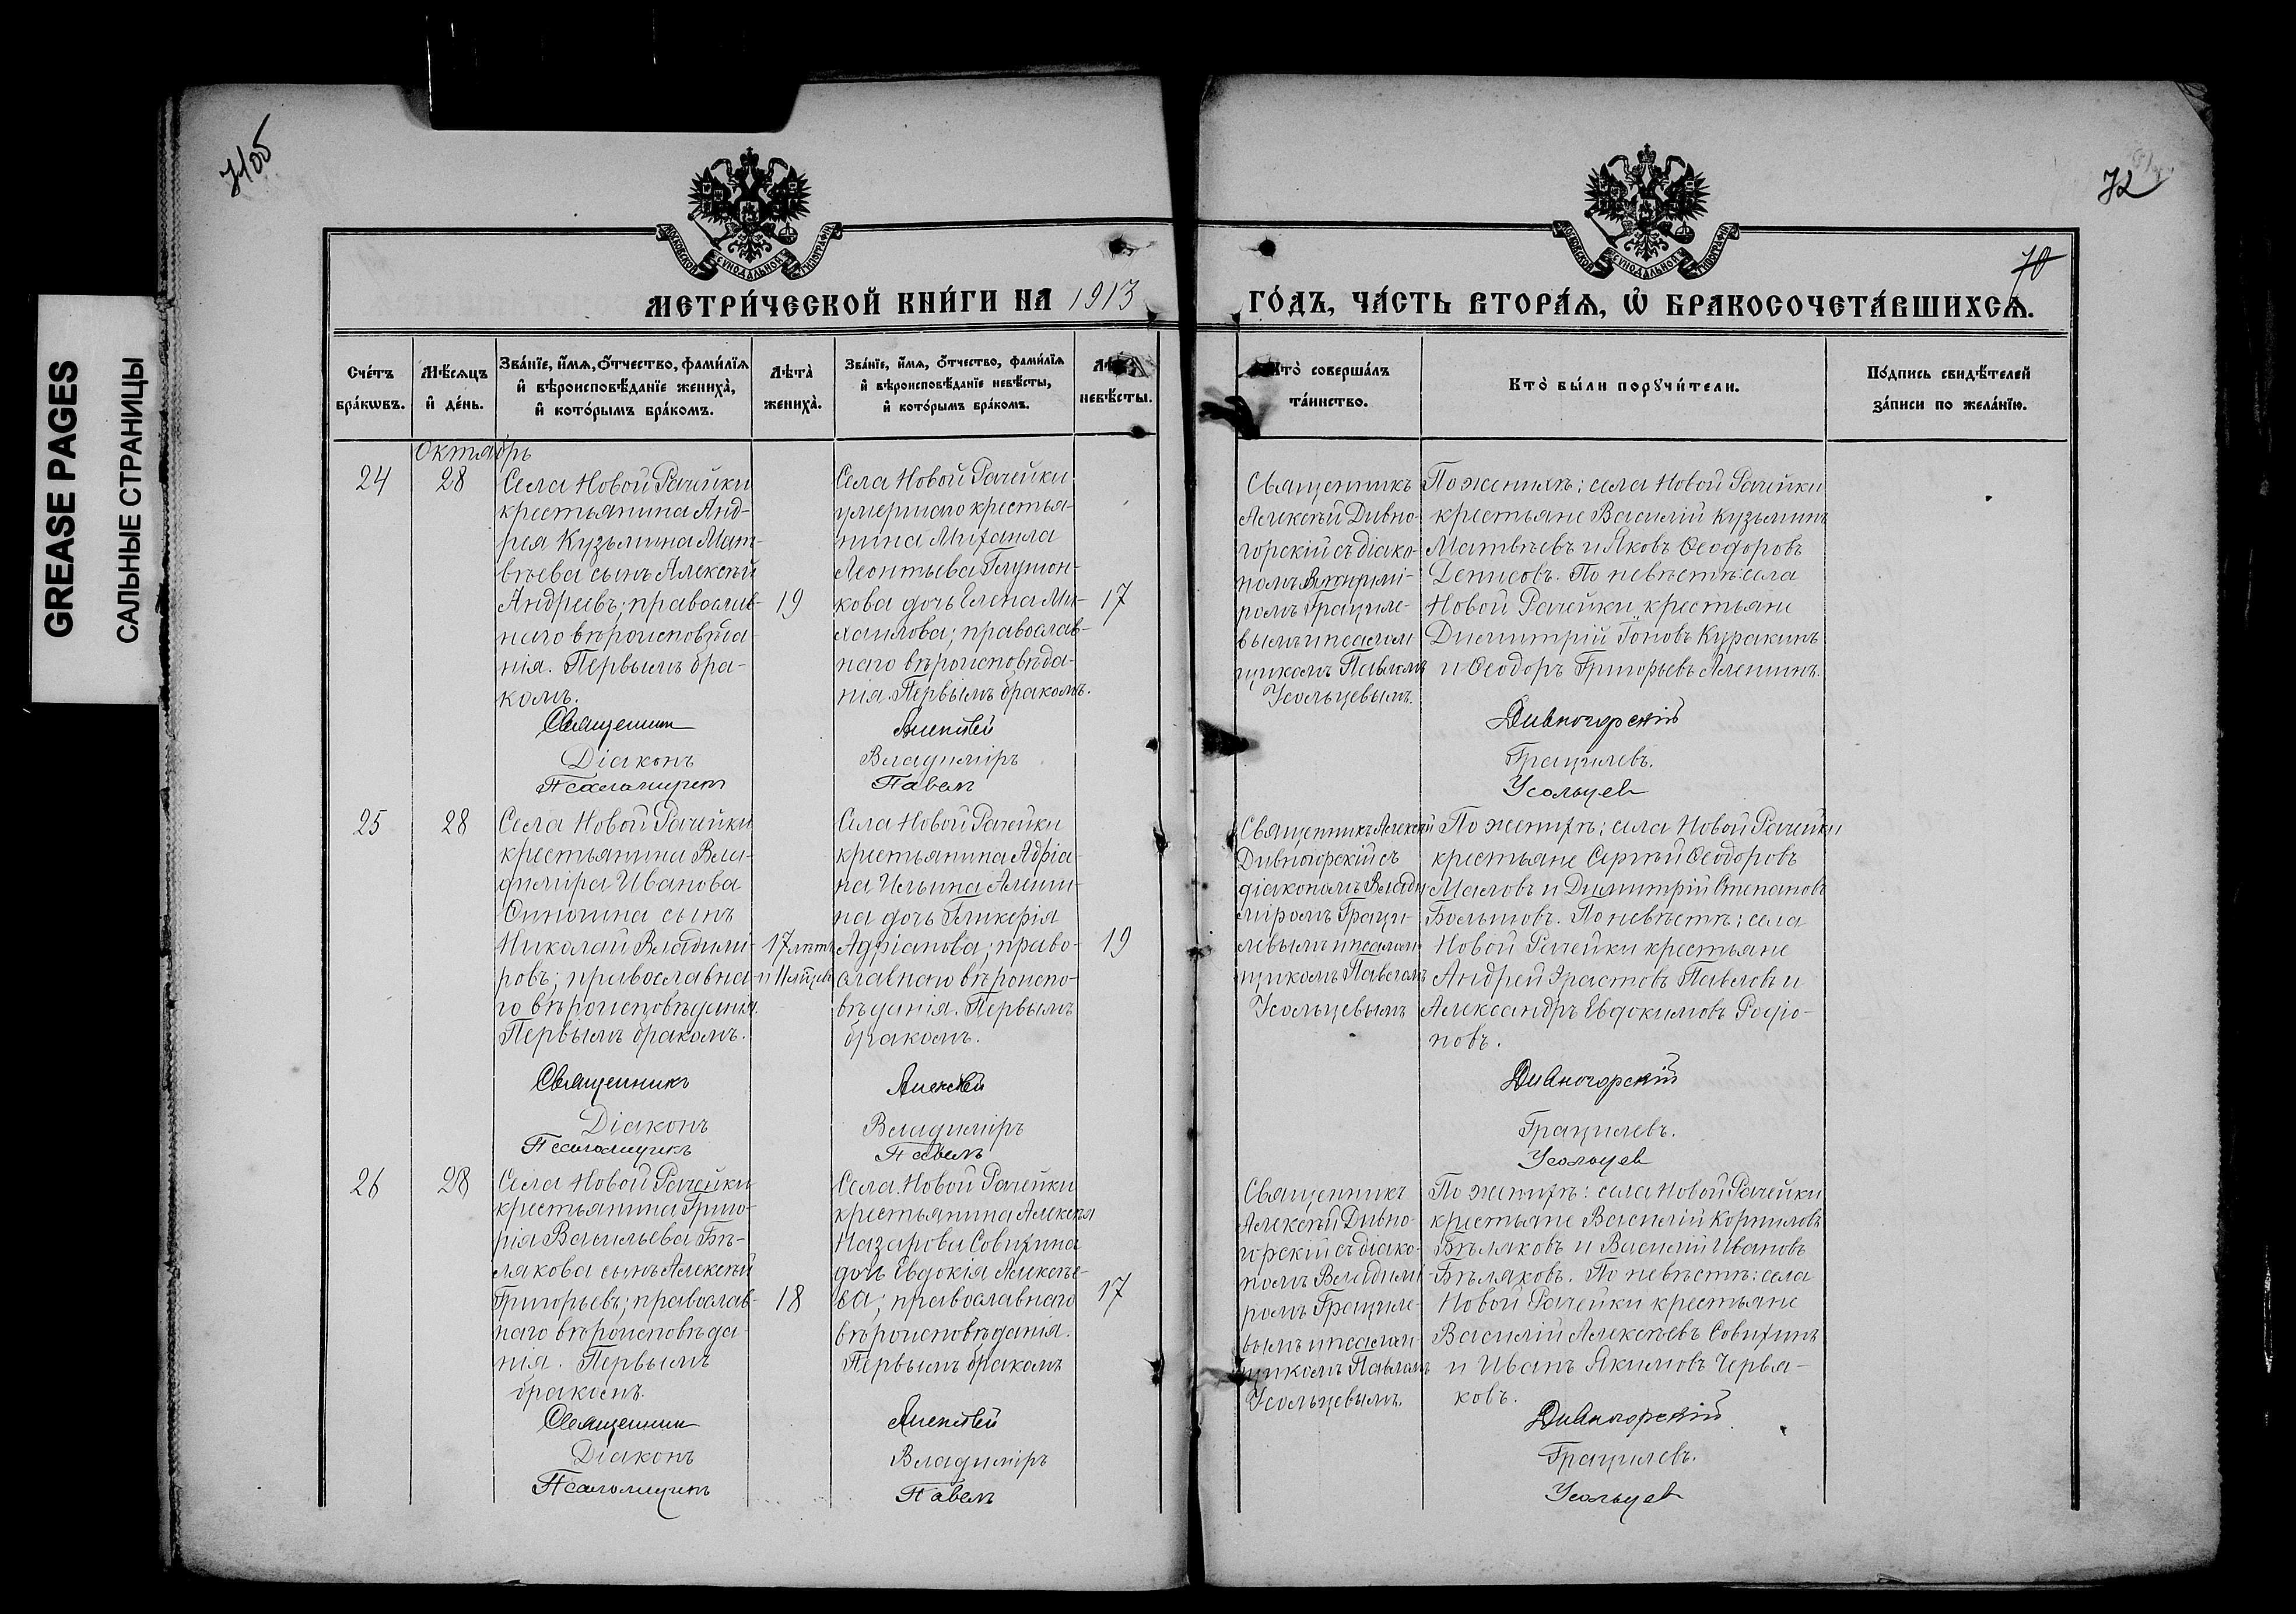 GREASE PAGES
САЛЬНЫЕ СТРАНИЦЫ
71об
72
70
МОСКОВСКОЙ СѴНОДАЛЬНОЙ ТИПОГРАФІИ
МОСКОВСКОЙ СѴНОДАЛЬНОЙ ТИПОГРАФІИ
МЕТРИ́ЧЕСКОЙ КНИ́ГИ НА 1913
ГО́ДЪ, ЧА́СТЬ ВТОРА́Ѧ, Ѡ҆ БРАКОСОЧЕТА́ВШИХСѦ.
Сче́тъ
бра́кωвъ.
Мѣ́сѧцъ
и҆ де́нь.
Зва́нїе, и҆́мѧ, ѻ҆́тчество, фами́лїѧ
и҆ вѣроисповѣ́данїе жениха̀,
и҆ кото́рымъ бра́комъ.
Лѣта̀
жениха̀.
Зва́нїе, и҆́мѧ, ѻ҆́тчество, фами́лїѧ
и҆ вѣроисповѣ́данїе невѣ́сты,
и҆ кото́рымъ бра́комъ.
невѣ́сты.
Кто̀ соверша́лъ
та́инство.
Кто̀ бы́ли порꙋчи́тели.
По́дпись свидѣ́телей
за́писи по жела́нїю.
Октябрь
24
28
Села Новой Рачейки
крестьянина Анд-
рея Кузьмина Мат-
вѣева сынъ Алексѣй
Андреевъ; православ-
наго вѣроисповѣда-
нія. Первымъ бра-
комъ.
19
Села Новой Рачейки
умершаго крестья-
нина Михаила
Леонтьева
кова дочь Елена Ми-
хаилова; православ-
наго вѣроисповѣда-
нія. Первымъ бракомъ.
17
Священникъ
Алексѣй Дивно-
горскій съ діако-
номъ Владимі-
ромъ Грациле-
вымъ и псалом
щикомъ Павломъ
Усольцевымъ.
По женихѣ: села Новой Рачейки
крестьяне Василій Кузьминъ
Матвѣевъ и Яковъ Ѳеодоровъ
Денисовъ. По невѣстѣ: села
Новой Рачейки крестьяне
Димитрій Іоновъ Куракинъ
и Ѳеодоръ Григорьевъ Аленинъ.
Священник Алексѣй Дивногорскій
Діаконъ Владиміръ Грацилевъ.
Псаломщикъ Павелъ Усольцев
25
28
Села Новой Рачейки
крестьянина Вла-
диміра Иванова
сынъ
Николай Владимі-
ровъ; православна-
го вѣроисповѣданія.
Первымъ бракомъ.
17 лѣтъ
и 11 мѣсцевъ
Села Новой Рачейки
крестьянина Адріа-
на Ильина Алени-
на дочь Гликерія
Адріанова; право-
славнаго вѣроиспо-
вѣданія. Первымъ
бракомъ.
19
Священникъ Алексѣй
Дивногорскій съ
діакономъ Влади-
міромъ Граци-
левымъ и псалом
щикомъ Павломъ
Усольцевымъ
По женихѣ: села Новой Рачейки
крестьяне Сергѣй Ѳеодоровъ
Маловъ и Димитрій Степановъ
Большовъ. По невѣстѣ: села
Новой Рачейки крестьяне
Андрей Эрастовъ Павловъ и
Александръ Евдокимовъ Родіо-
новъ.
Священникъ Алексѣй Дивногорскій
Діаконъ Владиміръ Грацилевъ.
Псаломщикъ Павелъ Усольцев
26
28
Села Новой Рачейки
крестьянина Григо-
рія Васильева Бѣ-
лякова сынъ Алексѣй
Григорьевъ; православ-
наго вѣроисповѣда-
нія. Первымъ
бракомъ.
18
Села Новой Рачейки
крестьянина Алексѣя
Назарова Совихина
дочь Евдокія Алексѣе-
ва; православнаго
вѣроисповѣданія.
Первымъ бракомъ
17
Священникъ
Алексѣй Дивно-
горскій съ діако-
номъ Владимі-
ромъ Грациле-
вымъ и псалом
щикомъ Павломъ
Усольцевымъ.
По женихѣ: села Новой Рачейки
крестьяне Василій Корниловъ
Бѣляковъ и Василій Ивановъ
Бѣляковъ. По невѣстѣ: села
Новой Рачейки крестьяне
Василій Алексѣевъ Совихинъ
и Иванъ Якимовъ Червя-
ковъ.
Священник Алексѣй Дивногорскій
Діаконъ Владиміръ Грацилевъ.
Псаломщикъ Павелъ Усольцев